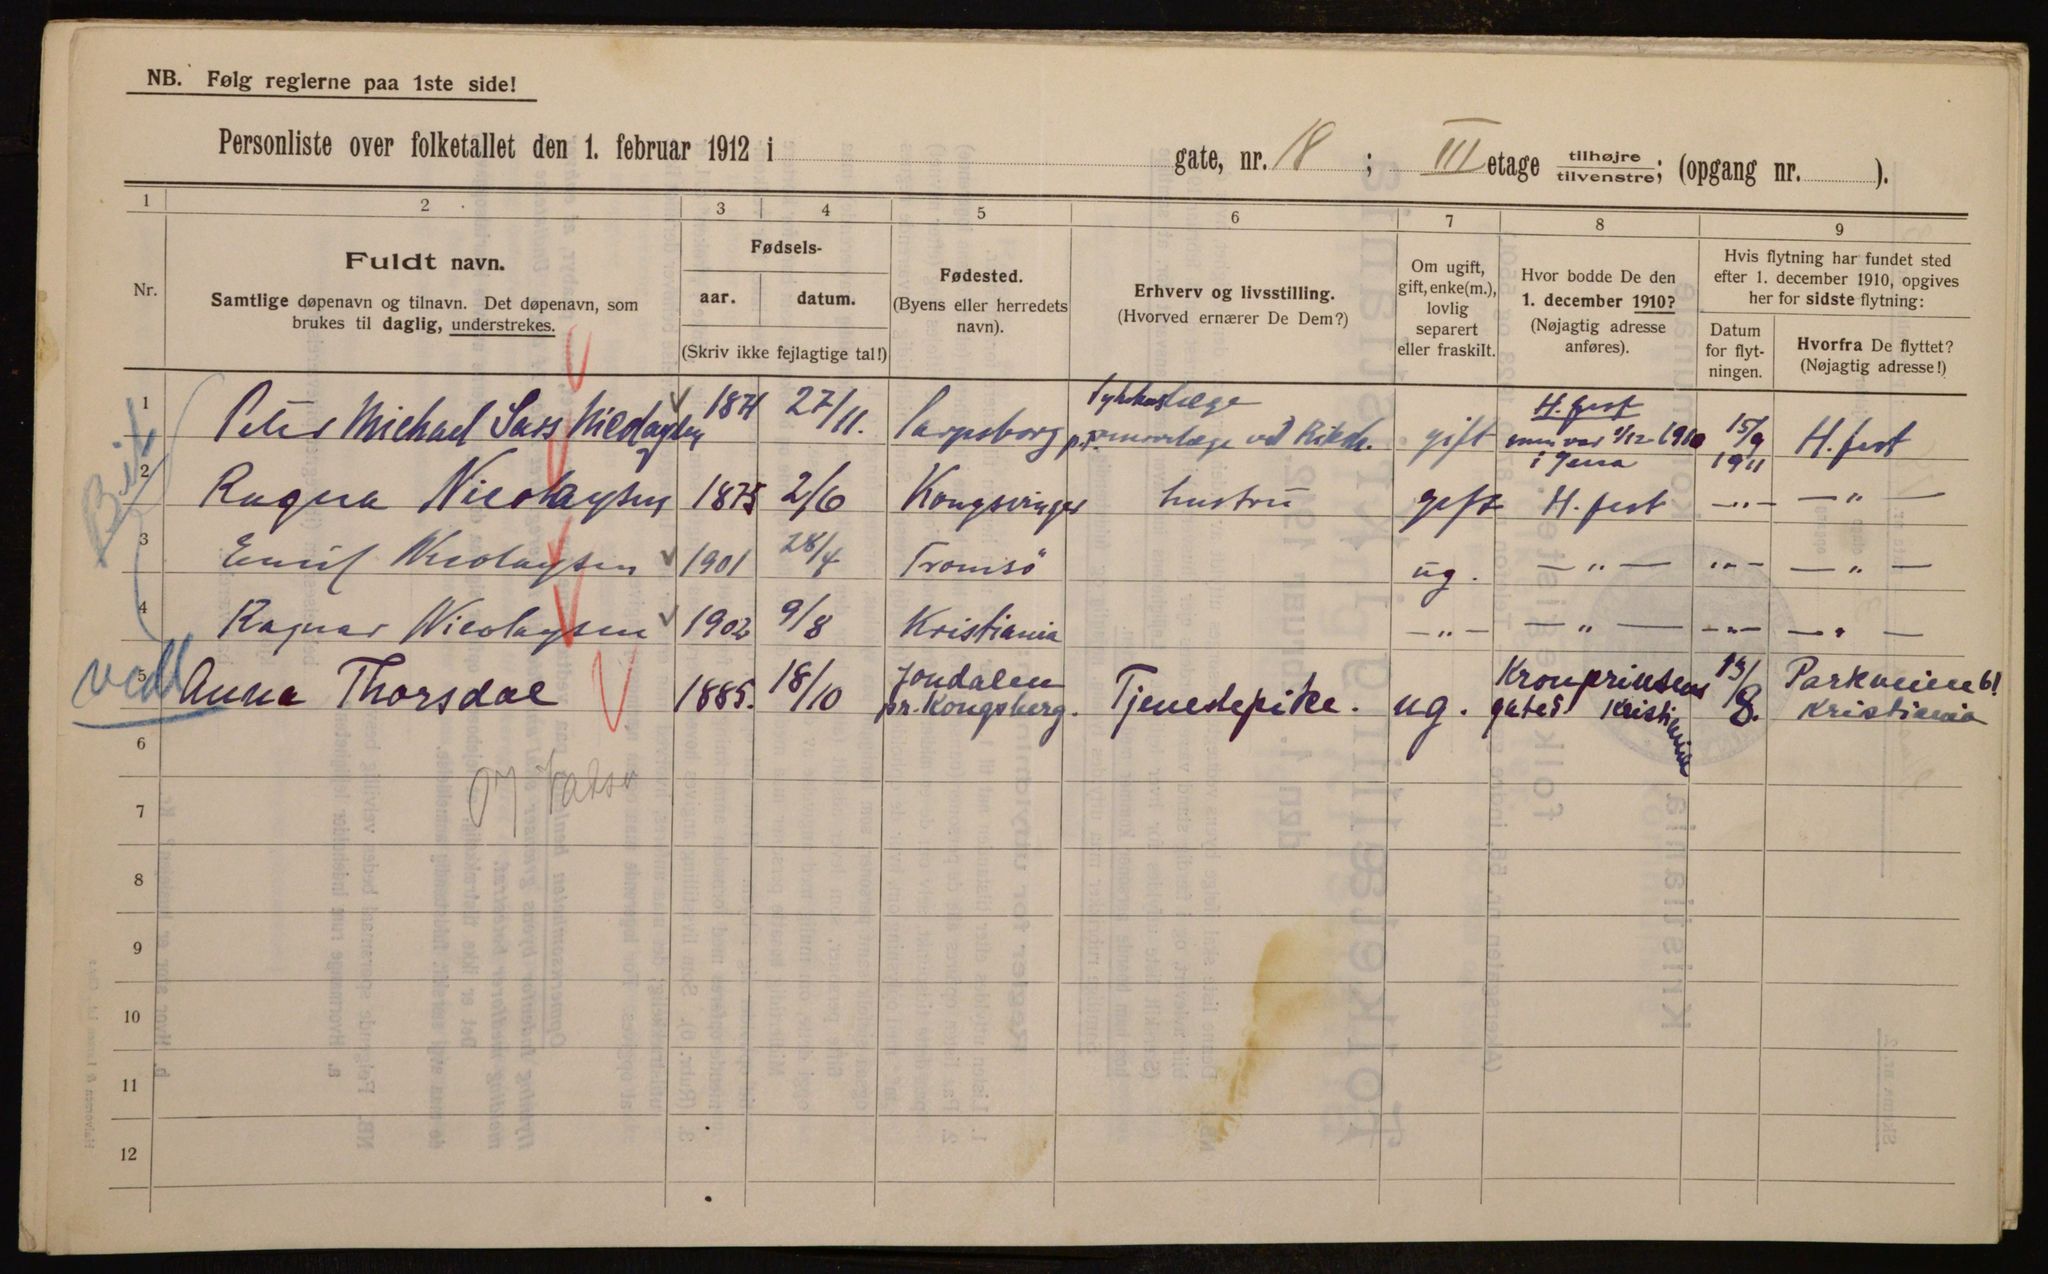 NB. Følg reglerne paa 1ste side!
Personliste over folketallet den 1. februar 1912 i gate, nr. 18 ; III etage tilhøjre tilvenstre; (opgang nr. ).
1 2 3 4 5 6 7 8 9
Nr.
Fuldt navn.
Samtlige døpenavn og tilnavn. Det døpenavn, som
brukes til daglig, understrekes.
Fødsels-
aar. datum.
(Skriv ikke fejlagtige tal!)
Fødested.
(Byens eller herredets
navn).
Erhverv og livsstilling.
(Hvorved ernærer De Dem?)
Om ugift,
gift, enke(m.),
lovlig
separert
eller fraskilt.
Hvor bodde De den
1. december 1910?
(Nøjagtig adresse
anføres).
Hvis flytning har fundet sted
efter 1. december 1910, opgives
her for sidste flytning:
Datum
for flyt-
ningen.
Hvorfra De flyttet?
(Nøjagtig adresse!)
1 Peter Michael Sars Nicolaysen 1871 27/11. Sarpsborg gift H. fest 1/12 1910 i Jena 15/9 1911 H. fest
2 Ragna Nicolaysen 1875 2/6 Kongsvinger hustru gift H. fest -"- -"-
3 Emil Nicolaysen 1901 28/4 Tromsö ug. -"- -"- -"-
4 Ragnar Nicolaysen 1902 9/8 Kristiania -"- -"- -"- -"-
5 Anna Thorsdal 1885. 18/10 Jondalen pr. Kongsberg. Tjenestepike. ug. Kronprinsens gate 5 Kristiania 8. Parkveien 61 Kristiania
6
7
8
9
10
11
12